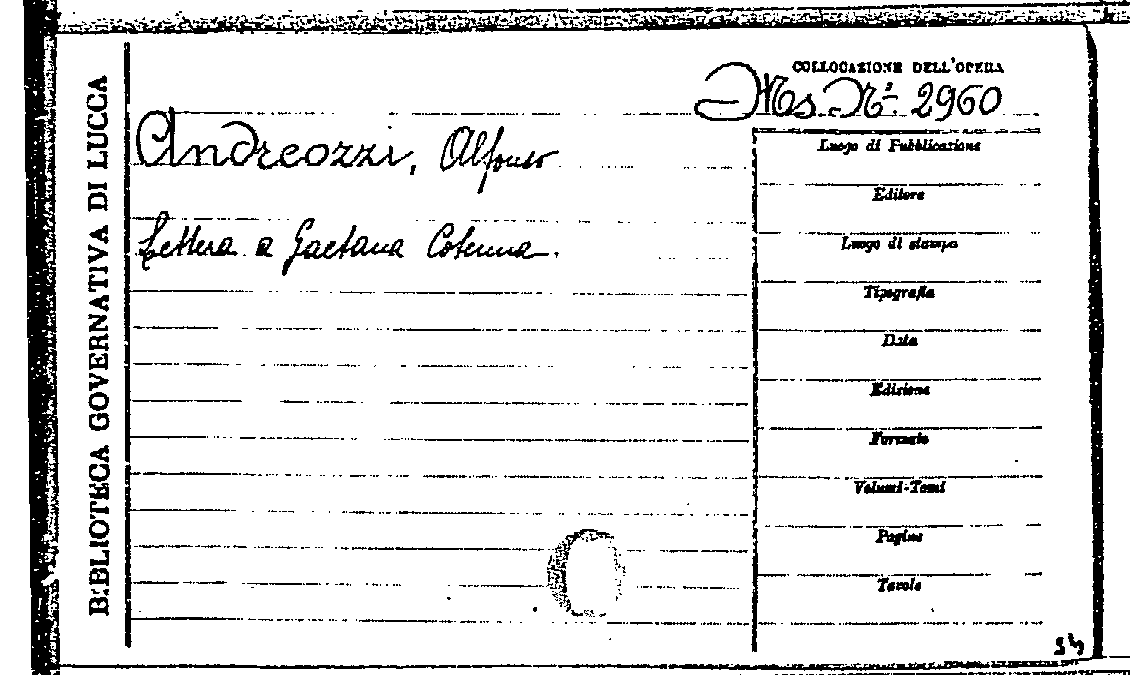 BIBLIOTECA GOVERNATIVA DI LUCCA
COLLOCAZIONE DELL'OPERA
Ms. N.º 2960
Andreozzi, Alfonso
Lettera a Gaetana Cotenna.
Luogo di Pubblicazione
Editore
Luogo di stampa
Tipografia
Data
Edizione
Formato
Volumi-Tomi
Pagine
Tavole